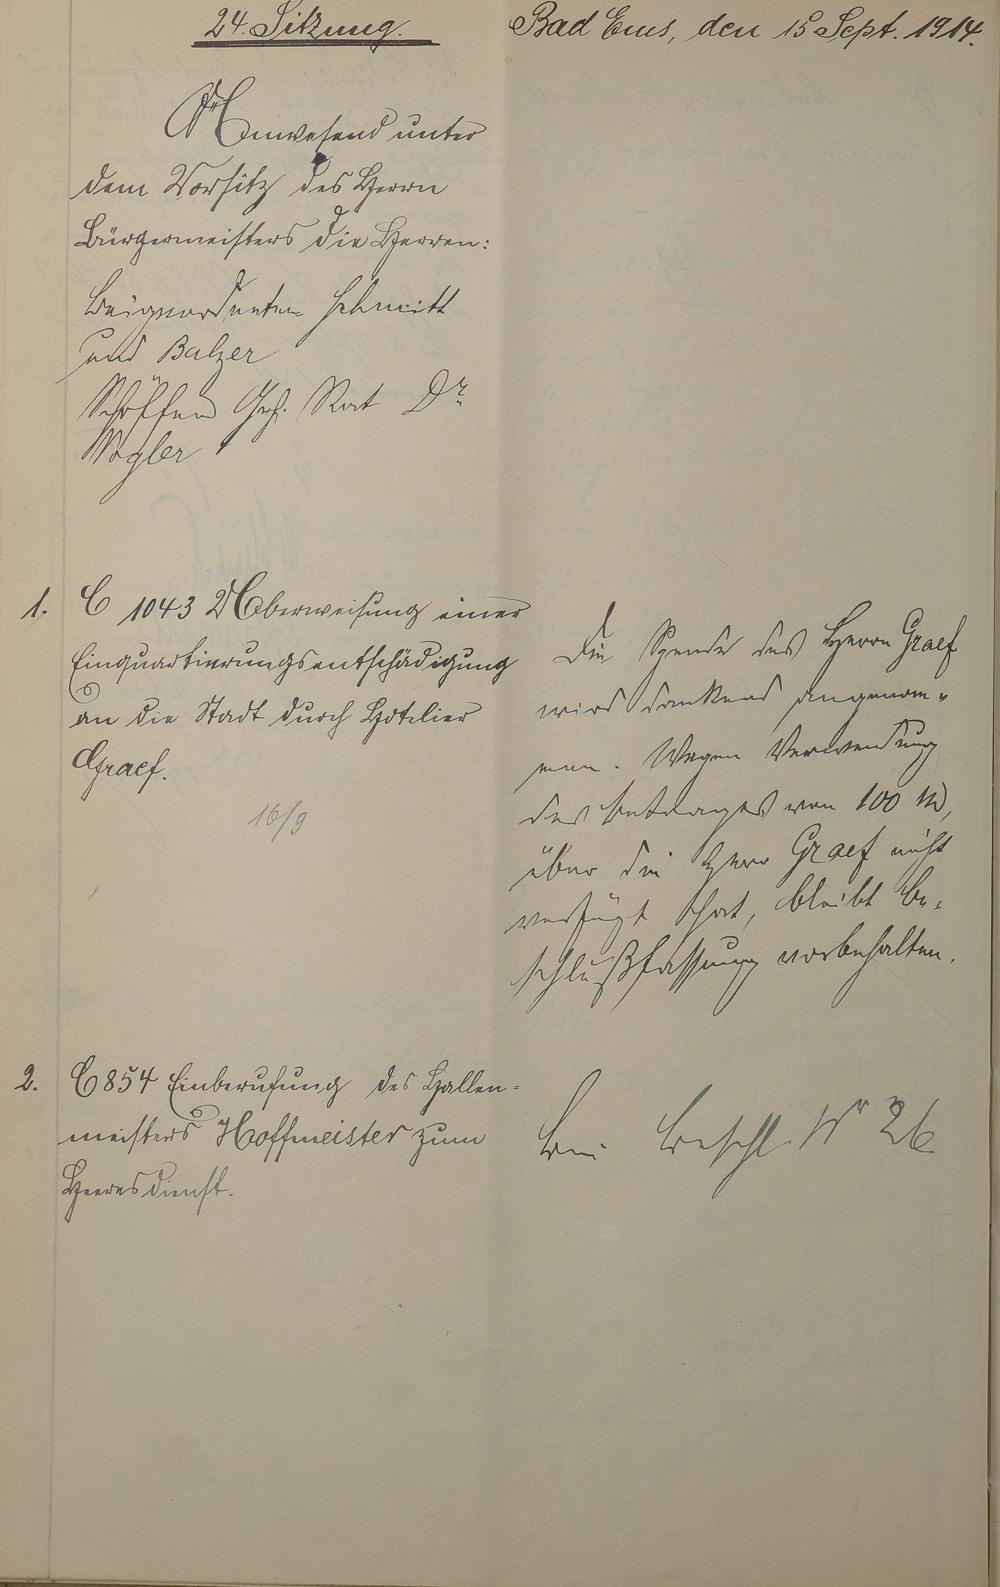 24. Sitzung.
Bad Ems, den 15 Sept. 1914.
Anwesend unter
dem Vorsitz des Herrn
Bürgermeisters die Herren:
Beigeordneten Schmitt
und Balzer
Schöffen Geh. Rat Dr.
Vogler
1. C 1043 Ueberweisung einer
Einquartierungsentschädigung
an die Stadt durch Hotelier
Graef.
16/9
Die Spende des Herrn Graef
wird dankend angenom-
men. Wegen Verwendung
des Betrages von 100 M,
über die Herr Graef nicht
verfügt hat, bleibt Be-
schlußfassung vorbehalten.
2. C 854 Einberufung des Hallen-
meisters Hoffmeister zum
Heeresdienst.
Beschl. Nr 26